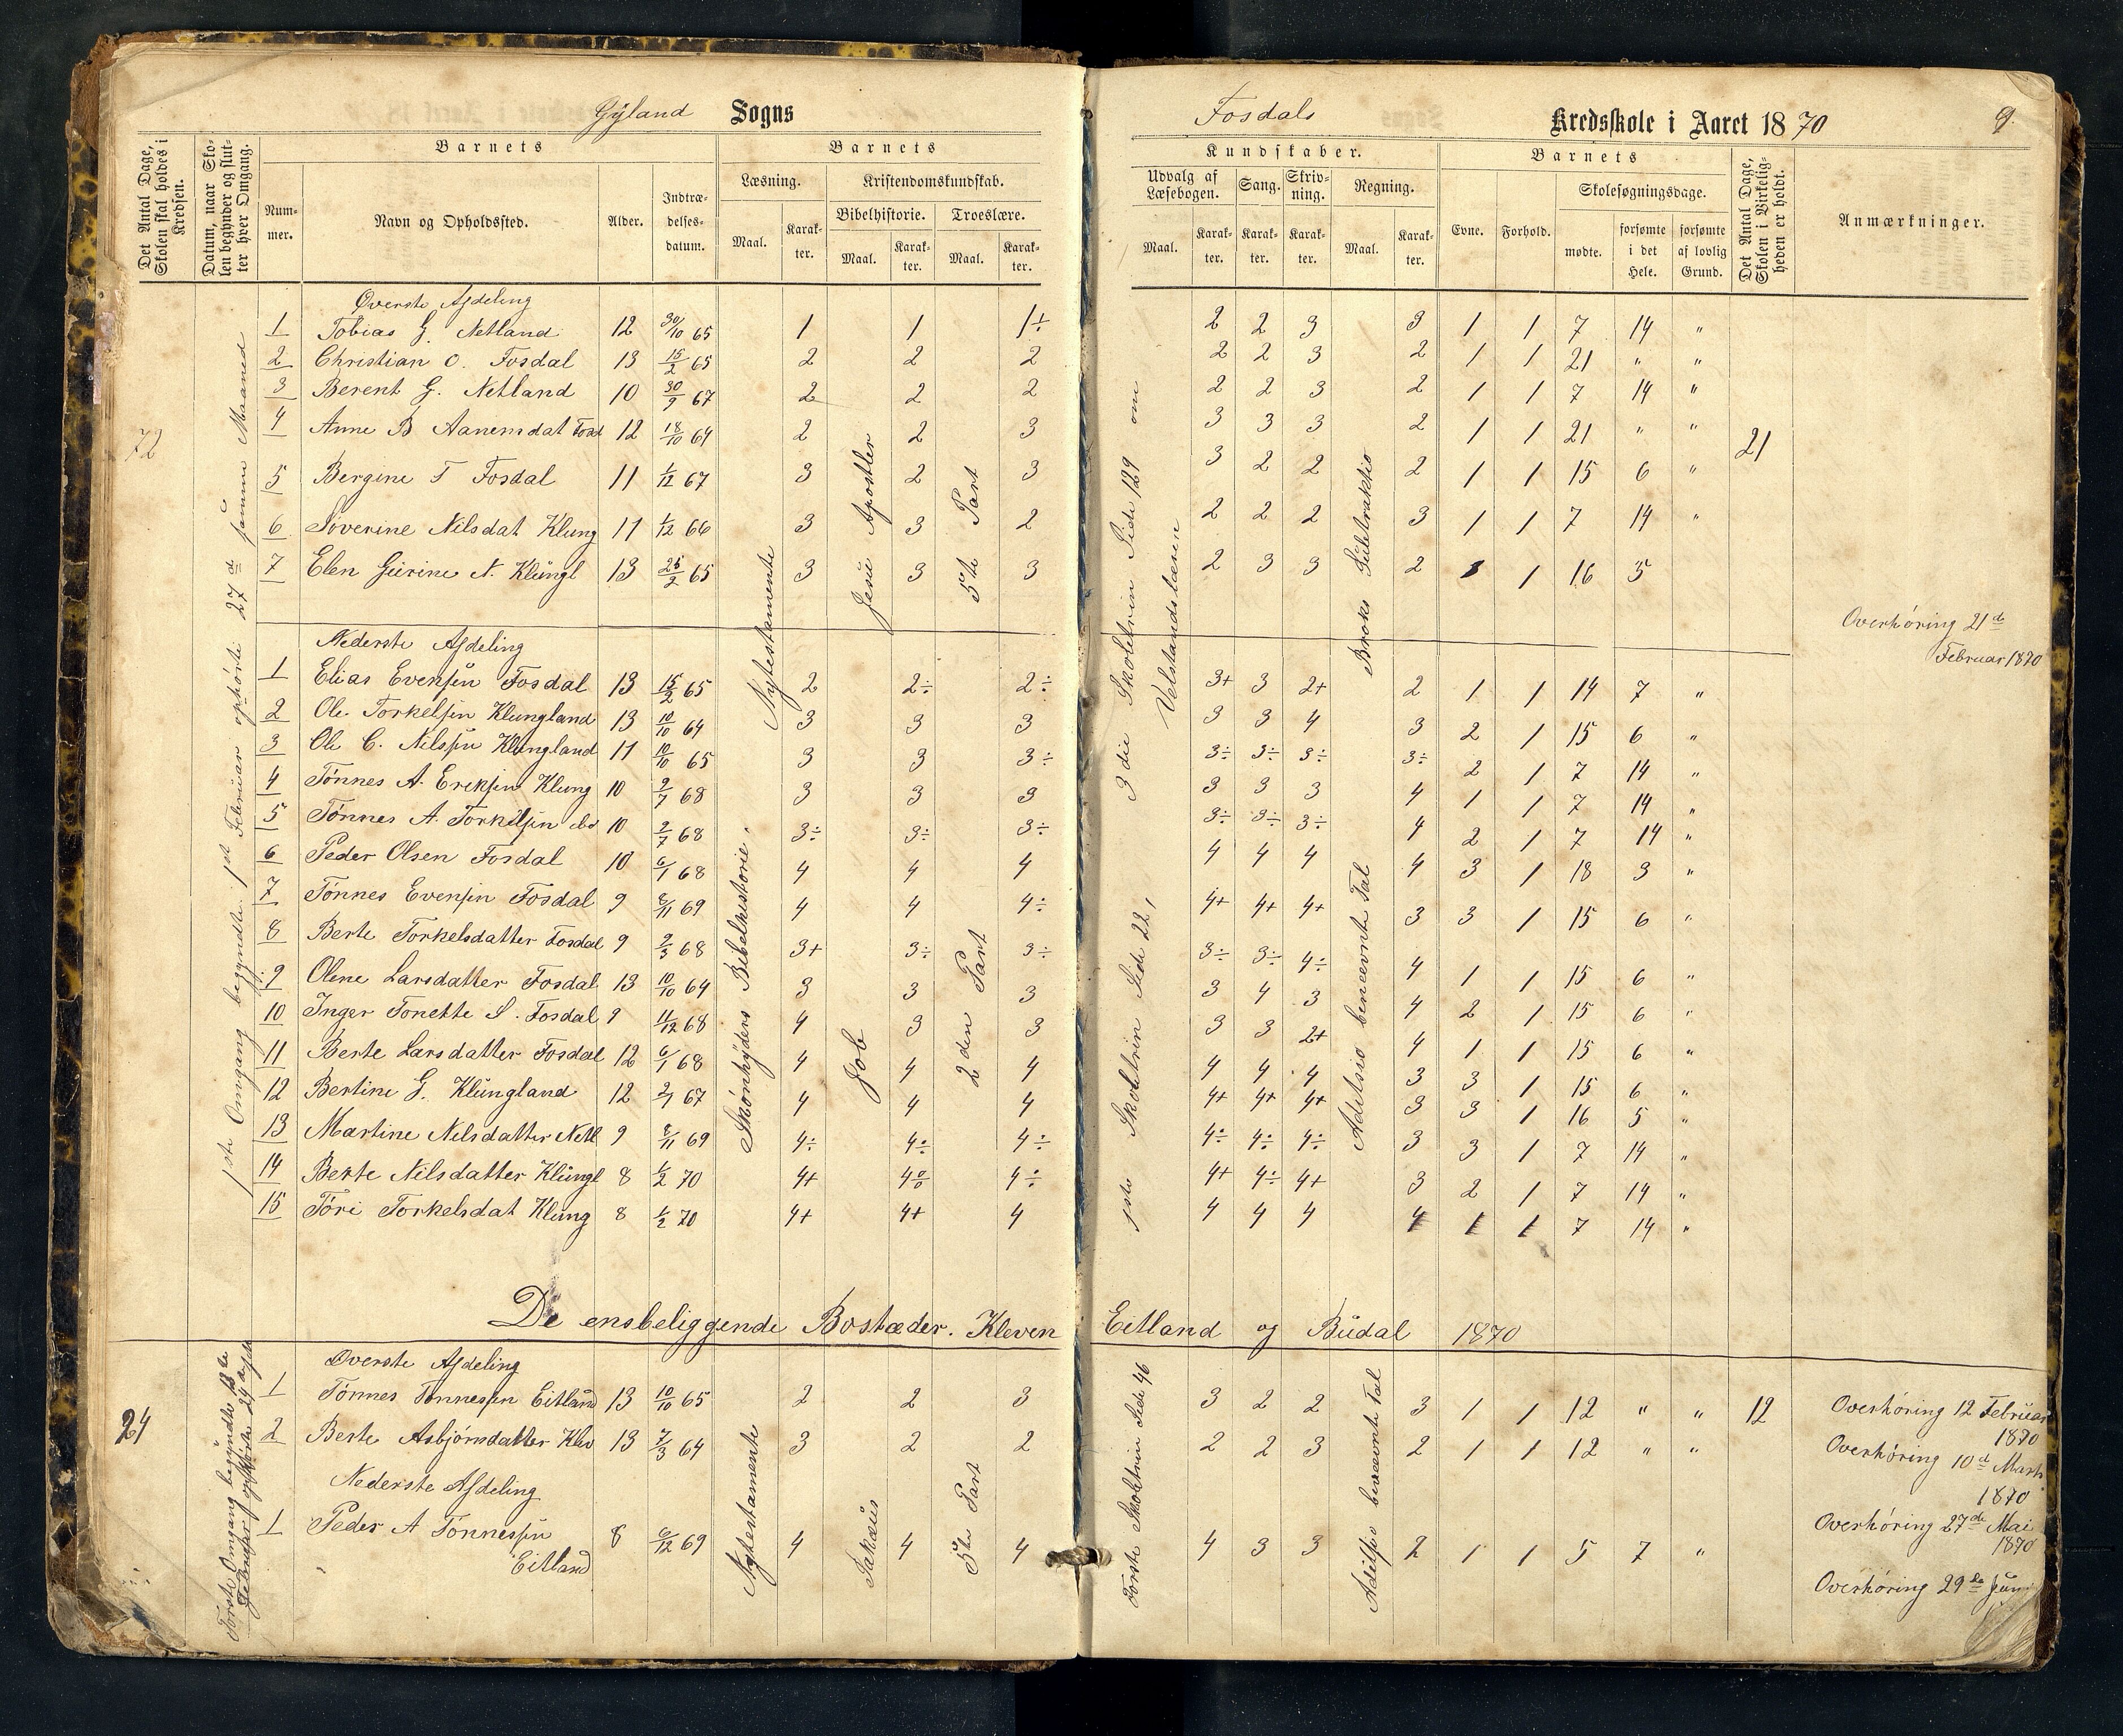 Gyland Sogns
Fosdals Kredsskole i Aaret 1870
9.
Det Antal Dage, Skolen skal holdes i Kredsen.
Datum, naar Skolen begynder og slutter hver Omgang.
Barnets
Nummer.
Navn og Opholdssted.
Alder.
Indtrædelsesdatum.
Barnets
Læsning.
Maal.
Karakter.
Kristendomskundskab.
Bibelhistorie.
Maal.
Karakter.
Troeslære.
Maal.
Karakter.
Kundskaber.
Udvalg af Læsebogen.
Maal.
Karakter.
Sang.
Karakter.
Skrivning.
Karakter.
Regning.
Maal.
Karakter.
Barnets
Evne.
Forhold.
Skolesøgningsdage.
mødte.
forsømte i det Hele.
forsømte af lovlig Grund.
Det Antal Dage, Skolen i Virkeligheden er holdt.
Anmærkninger.
72
1ste Omgang begyndte 1st Februar ophørte 27d samme Maaned
Nytestamente
Jesu Apostler
5te Part
3die Skoletrin Side 129 om
Velstandslæren
Broks Subtraktio
21
Øverste Afdeling
1 Tobias G. Netland 12 30/10 65 1 1 1÷ 2 2 3 3 1 1 7 14 "
2 Christian O. Fosdal 13 15/2 65 2 2 2 2 2 3 2 1 1 21 " "
3 Berent G. Netland 10 30/9 67 2 2 2 2 2 3 2 1 1 7 14 "
4 Anne B Aanensdat Fosd 12 18/10 64 2 2 3 3 3 3 2 1 1 21 " "
5 Bergine T Fosdal 11 1/12 67 3 2 3 3 2 2 2 1 1 15 6 "
6 Severine Nilsdat Klung 11 1/12 66 3 3 2 2 2 2 3 1 1 7 14 "
7 Elen Gurine N. Klungl 13 25/2 65 3 3 3 2 3 3 2 1 16 5
Overhøring 21de
Februar 1870
Nederste Afdeling
Skønhyders Bibelhistorie.
Job
2den Part
1ste Skoletrin Side 22,
Aditsio benævnte Tal
1 Elias Evensøn Fosdal 13 15/2 65 2 2÷ 2÷ 3+ 3 2+ 2 1 1 14 7 "
2 Ole Torkelsøn Klungland 13 10/10 64 3 3 3 3 3 4 3 2 1 15 6 "
3 Ole C. Nilsøn Klungland 11 10/10 65 3 3 3÷ 3÷ 3÷ 3÷ 3÷ 2 1 7 14 "
4 Tønnes A. Eriksøn Klung 10 2/7 68 3 3 3 3 3 3 4 1 1 7 14 "
5 Tønnes A. Torkelsøn do 10 2/7 68 3÷ 3÷ 3÷ 3÷ 3÷ 3÷ 4 2 1 7 14 "
6 Peder Olsen Fosdal 10 6/1 68 4 4 4 4 4 4 4 3 1 18 3 "
7 Tønnes Evensøn Fosdal 9 8/11 69 4 4 4÷ 4+ 4+ 4+ 3 3 1 15 6 "
8 Berte Torkelsdatter Fosdal 9 2/3 68 3+ 3÷ 3÷ 3÷ 3÷ 4÷ 4 1 1 15 6 "
9 Olene Larsdatter Fosdal 13 10/10 64 3 3 3 3 4 3 4 2 1 15 6 "
10 Inger Tonette S. Fosdal 9 11/12 68 4 3 3 3 3 2+ 4 1 1 15 6 "
11 Berte Larsdatter Fosdal 12 6/1 68 4 4 4 4 4 4 3 3 1 15 6 "
12 Bertine G. Klungland 12 2/1 67 4 4 4 4+ 4+ 4+ 3 3 1 16 5 "
13 Martine Nilsdatter Netl 9 8/11 69 4÷ 4÷ 4÷ 4÷ 4÷ 4÷ 3 3 1 7 14 "
14 Berte Nilsdatter Klungl 8 1/2 70 4+ 4÷ 4÷ 4+ 4÷ 4+ 3 2 1 7 14 "
15 Tøri Torkelsdat Klung 8 1/2 70 4+ 4+ 4 4 4 4 4 1 1 7 14 "
De ensbeliggende Bostæder. Kleven Eitland og Budal 1870
24
Første Omgang begyndte
Februar ophørte 24
Nytestamente
Sakæus
5te Part
Første Skoletrin Side 46
Aditsio benævnte Tal
12
Øverste Afdeling
1 Tønnes Tønnessøn Eitland 13 10/10 65 2 2 3 3 2 2 3 1 1 12 " "
Overhøring 12 Februar
1870
2 Berte Asbjørnsdatter Klev 13 7/3 64 3 2 2 2 2 3 2 1 1 12 " "
Overhøring 10d Marts
1870
Nederste Afdeling
1 Peder A Tønnessøn 8 6/12 69 4 4 4 4 3 3 2 1 1 5 7 "
Eitland
Overhøring 27de Mai
1870
Overhøring 29de Juni